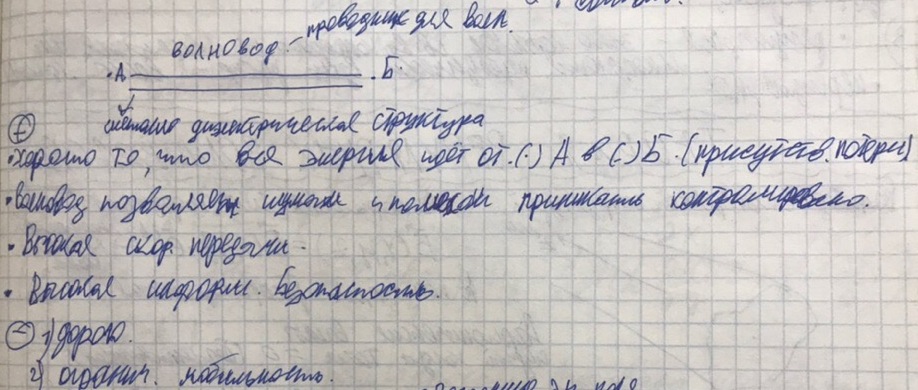 волновод - проводник для волн.
.А .Б.
диэлектрическая структура
+
• хорошо то, что вся энергия идёт от (·) А в (·) Б. (присутств. потери)
• волновод позволяет шумам и помехам проникать контролировано.
• Высокая скор. передачи.
• Высокая информ. безопасность.
- 1) дорого.
2) огранич. мобильность.